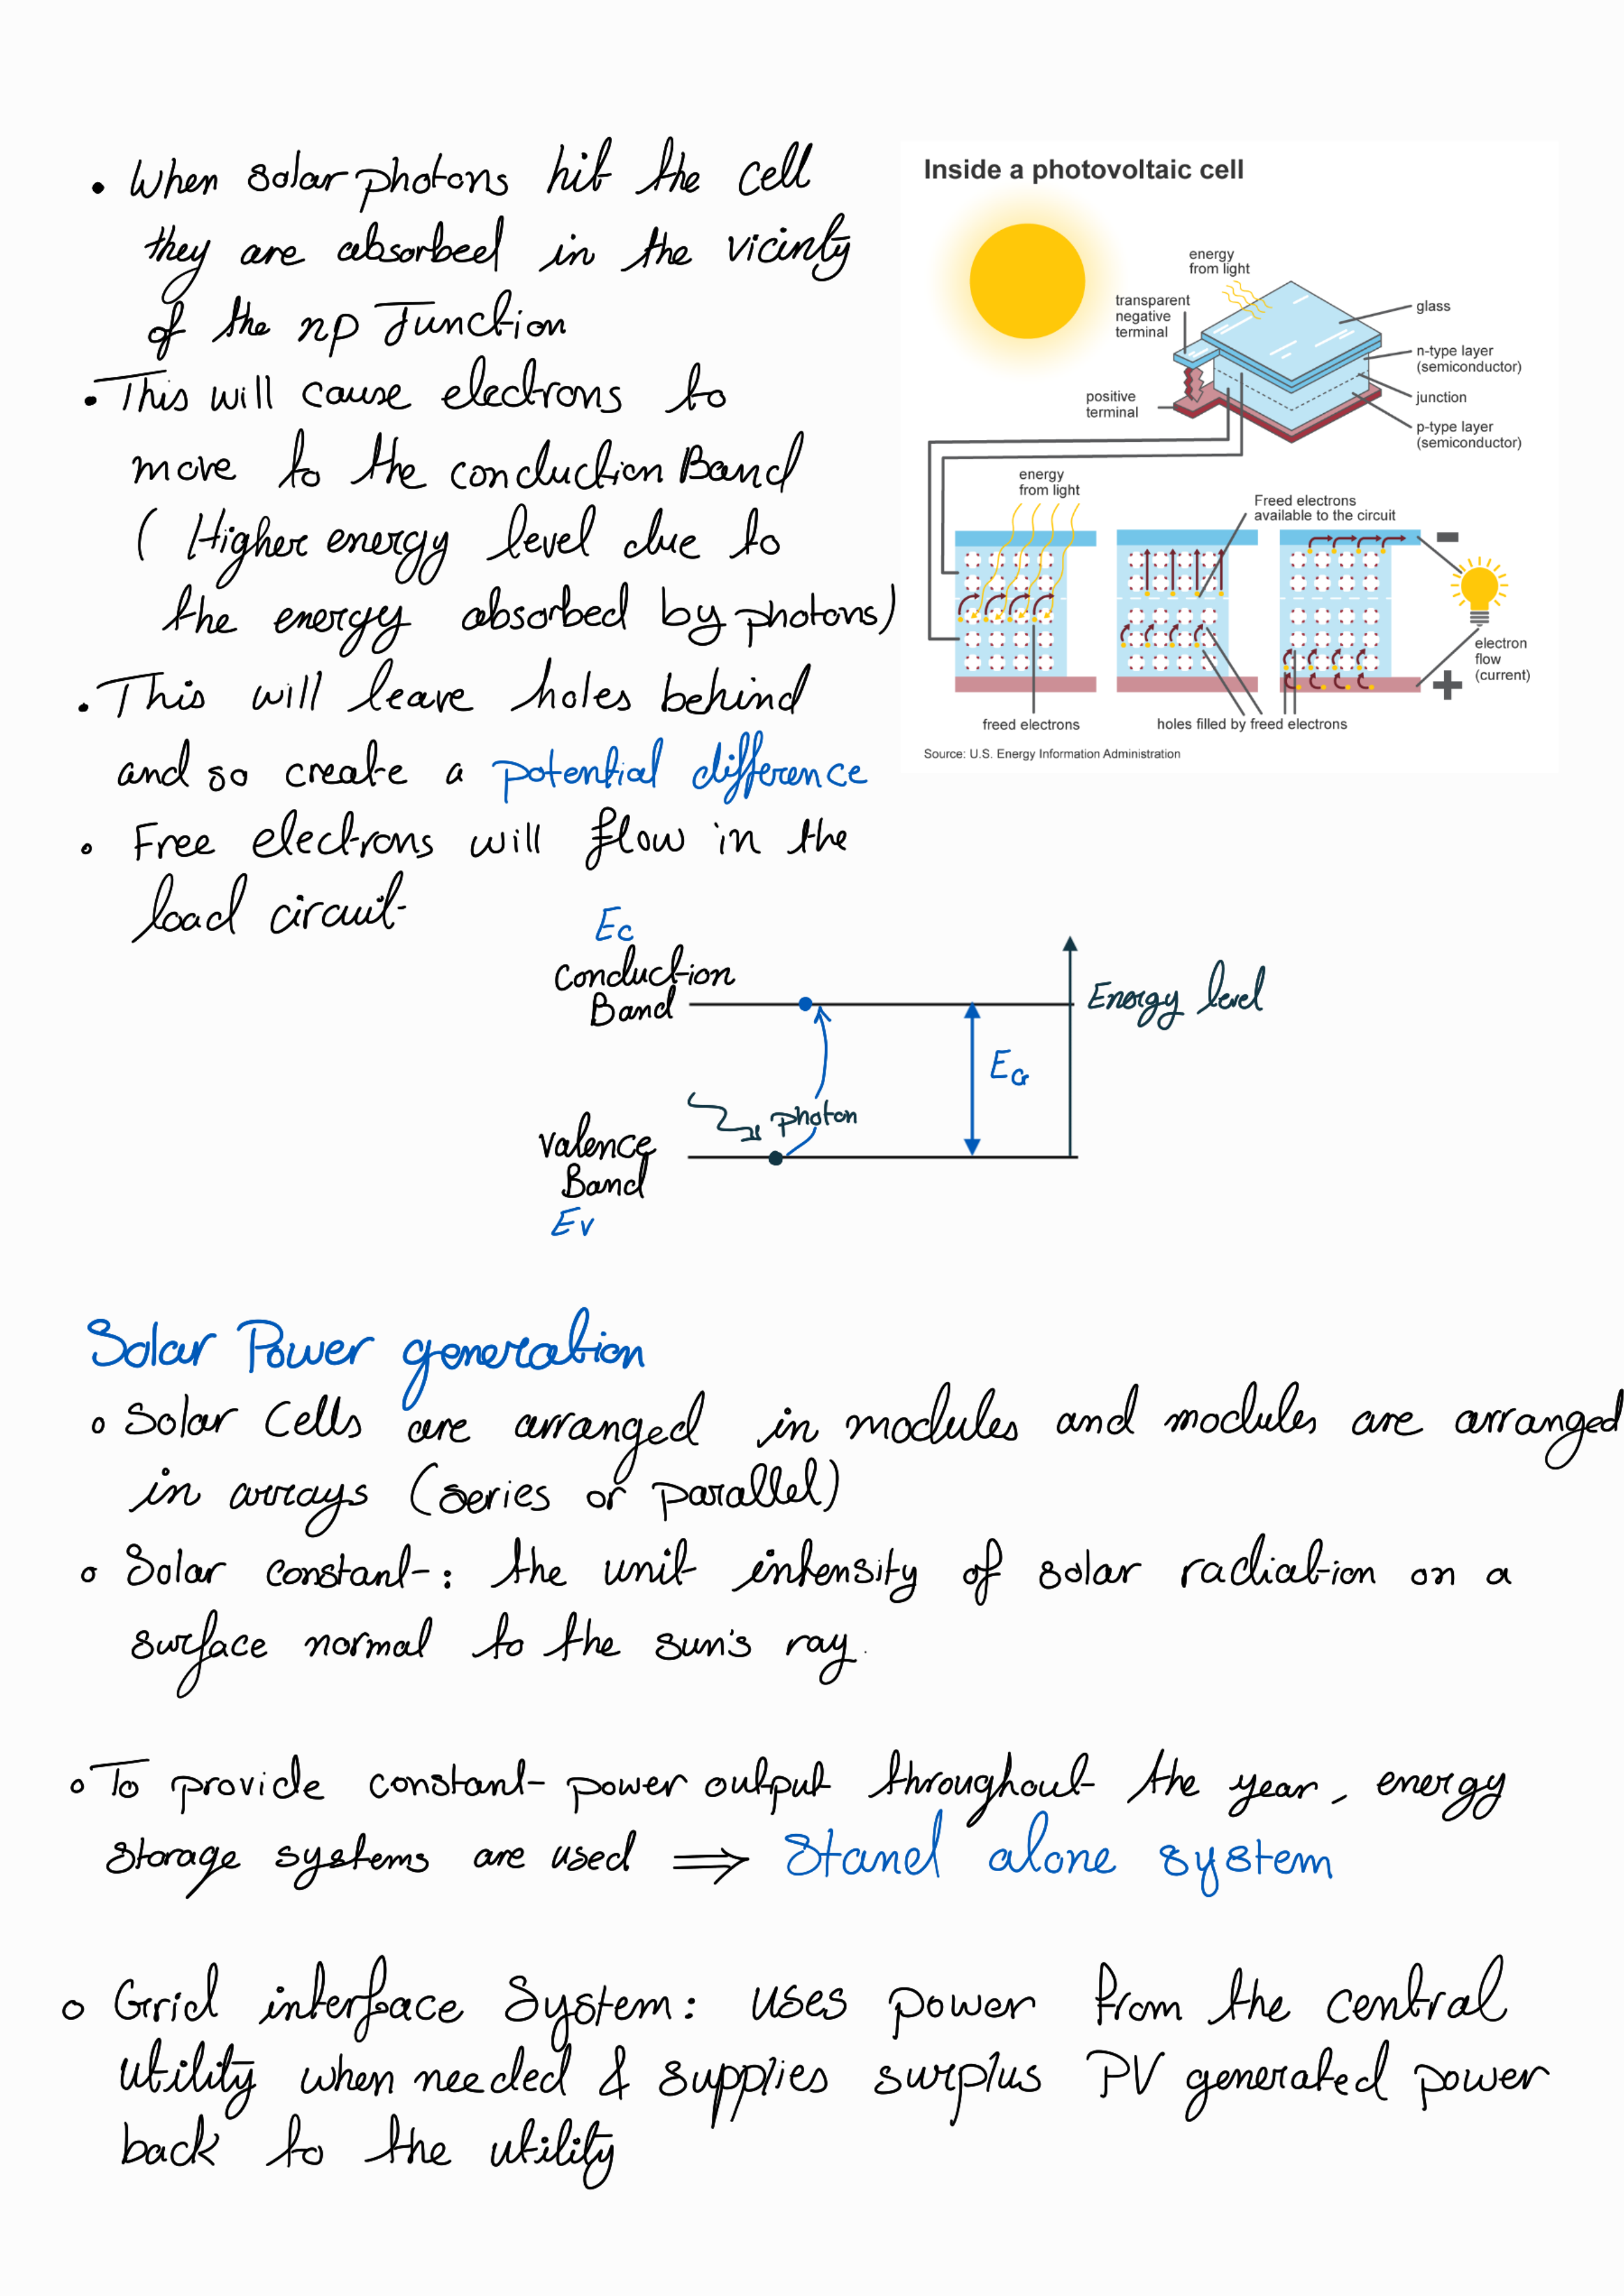 • When solar photons hit the cell
they are absorbed in the vicinty
of the np Junction
• This will cause electrons to
move to the conduction Band
( Higher energy level due to
the energy absorbed by photons)
• This will leave holes behind
and so create a potential difference
• Free electrons will flow in the
load circuit
Inside a photovoltaic cell
energy
from light
transparent
negative
terminal
glass
n-type layer
(semiconductor)
junction
positive
terminal
p-type layer
(semiconductor)
energy
from light
Freed electrons
available to the circuit
−
electron
flow
(current)
+
freed electrons
holes filled by freed electrons
Source: U.S. Energy Information Administration
Ec
Conduction
Band
Energy level
EG
photon
Valence
Band
Ev
Solar Power generation
◦ Solar Cells are arranged in modules and modules are arranged
in arrays (series or parallel)
◦ Solar constant: the unit intensity of solar radiation on a
surface normal to the sun's ray.
◦ To provide constant power output throughout the year, energy
storage systems are used ⟹ Stand alone system
◦ Grid interface System: uses power from the central
utility when needed & supplies surplus PV generated power
back to the utility